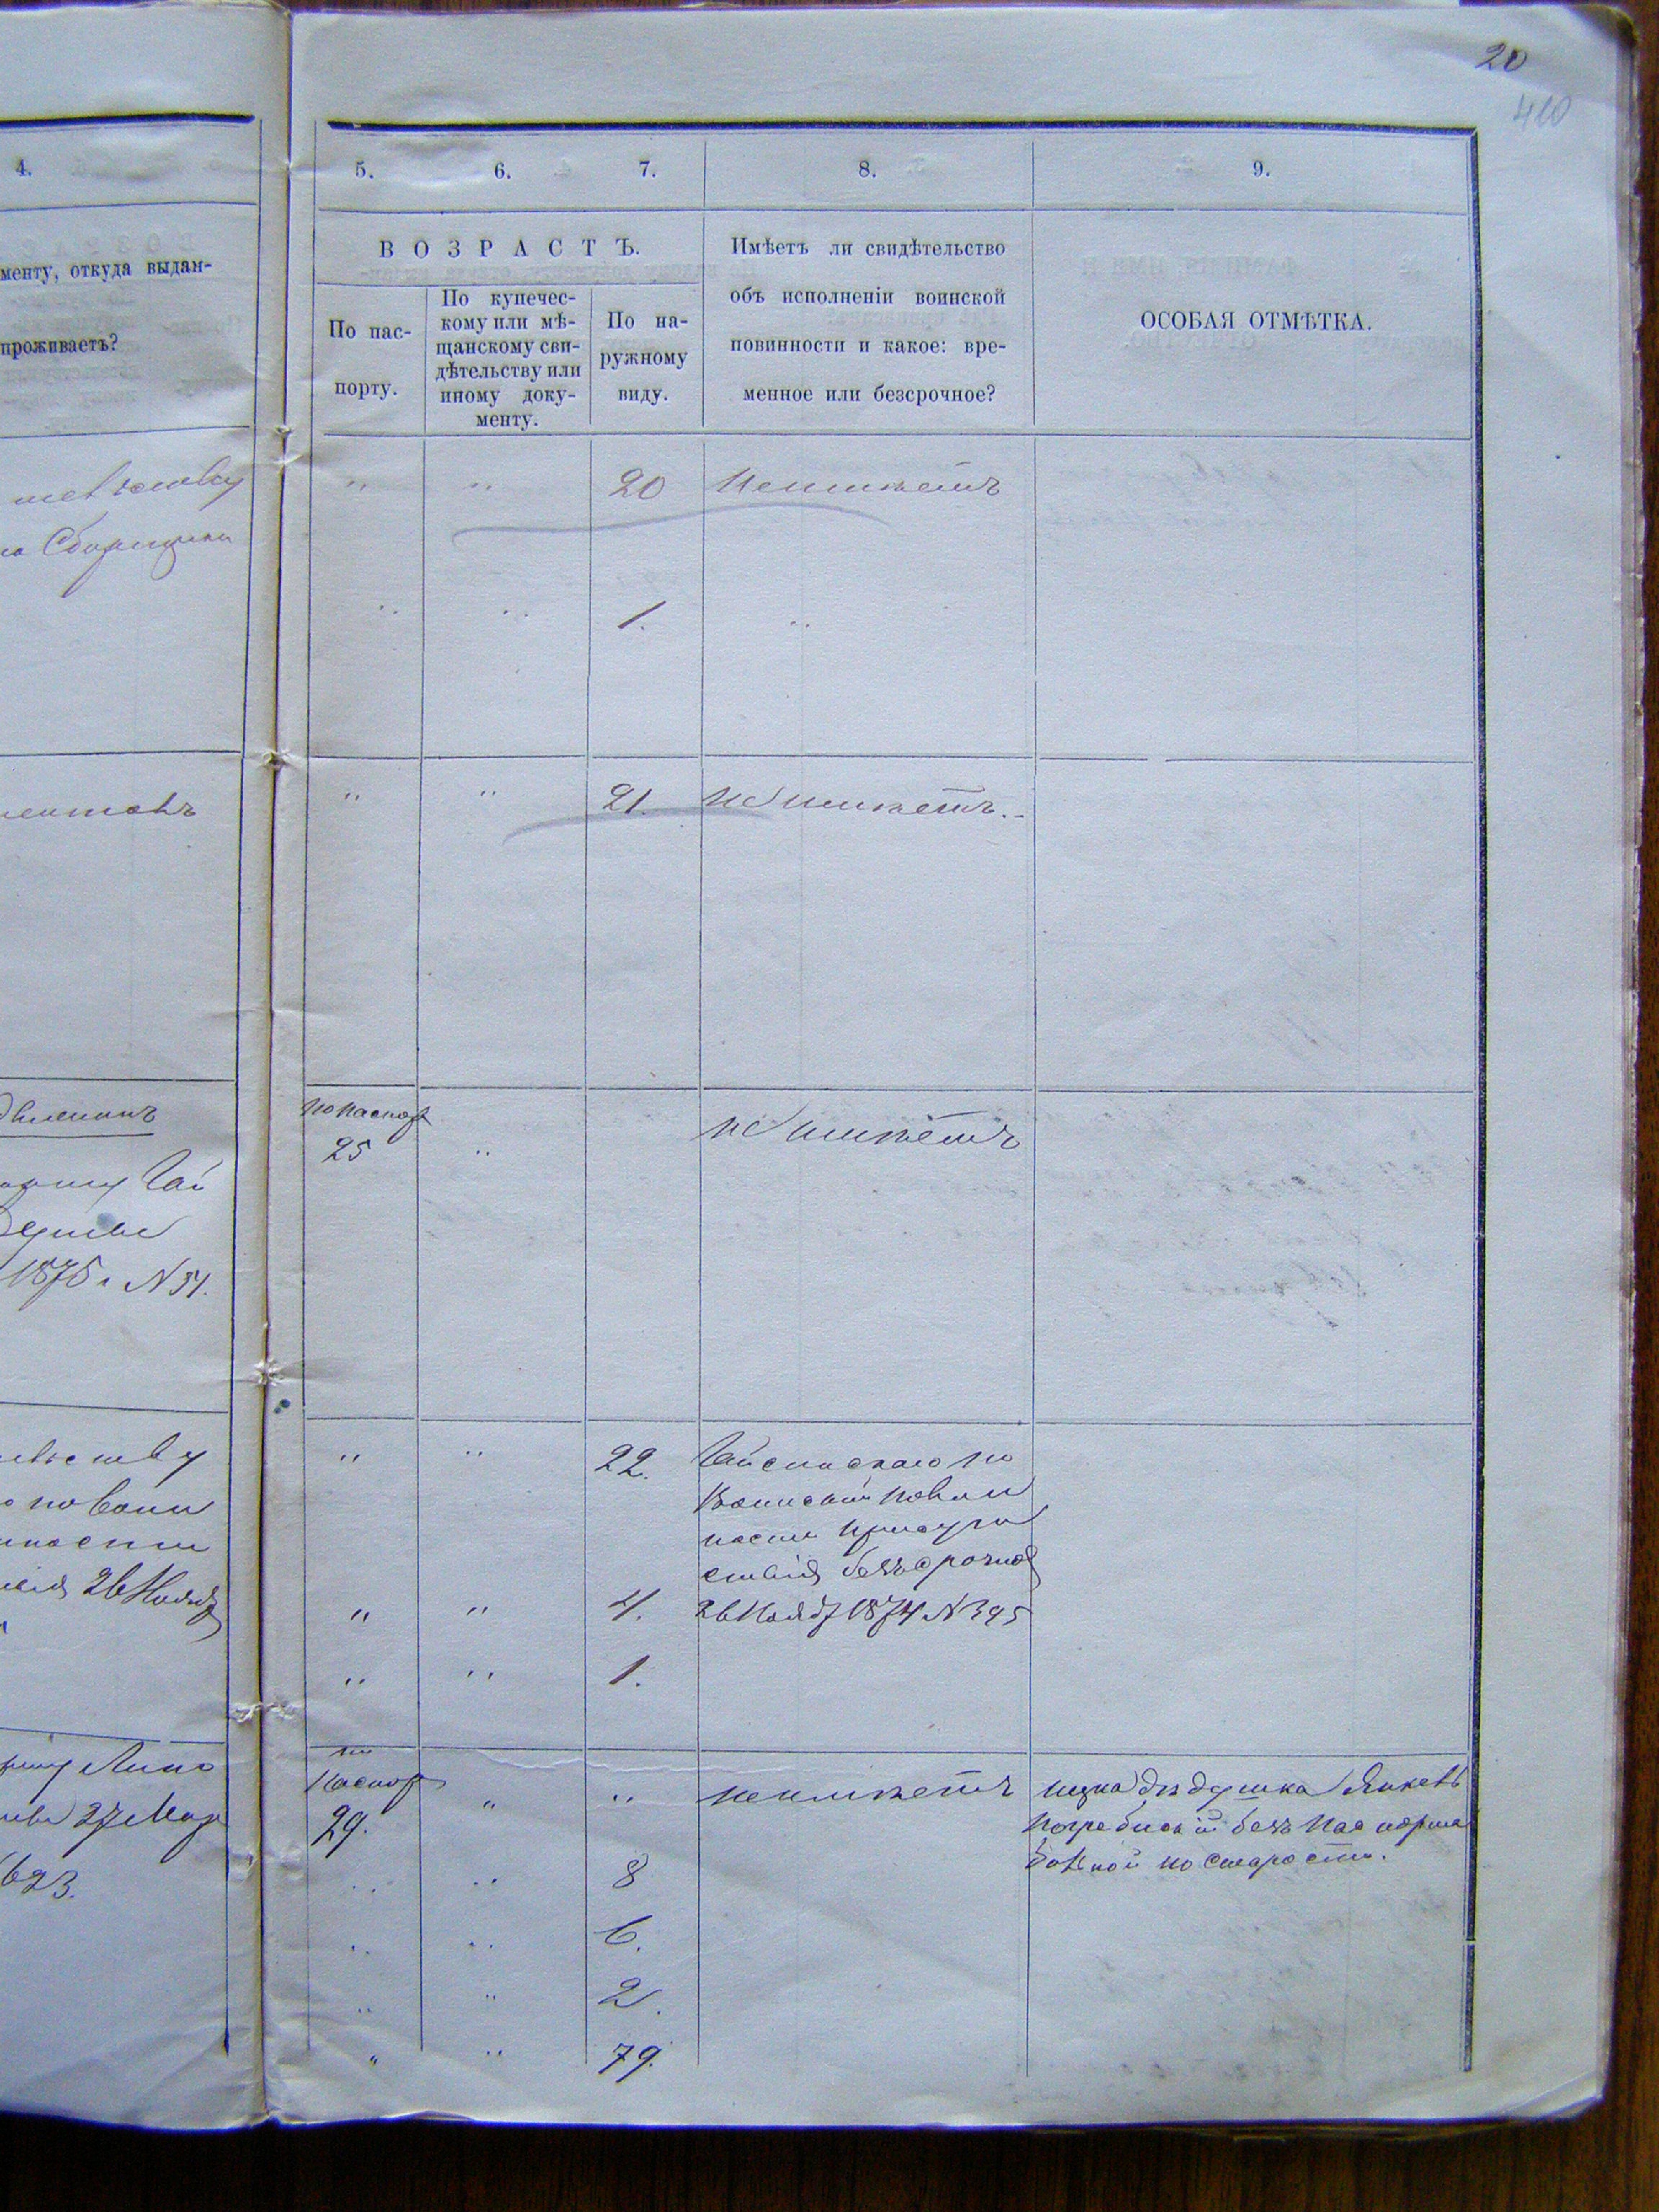 20
410
4.
5.
6.
7.
8.
9.
менту, откуда выдан-
проживаетъ?
ВОЗРАСТЪ.
По пас-
порту.
По купечес-
кому или мѣ-
щанскому сви-
дѣтельству или
иному доку-
менту.
По на-
ружному
виду.
Имѣетъ ли свидѣтельство
объ исполненіи воинской
повинности и какое: вре-
менное или безсрочное?
ОСОБАЯ ОТМѢТКА.
" " 20 Неимѣетъ
" " 1. "
" " 21. не имѣетъ.-
1875 г. N 51.
По паспор
25 " не имѣетъ
26 Нояб
" " 22. Гайсинскаго по
Воинской повин
ности присут
ствія безсрочное
" " 4. 26 Нояб 1874 N 395
" " 1.
27 Мар
623.
по
Паспор
29. " " неимѣетъ
дѣдушка Янкевъ
Погребиский безъ паспорта
по старости.
" " 8
" " 6.
" " 2.
" " 79.